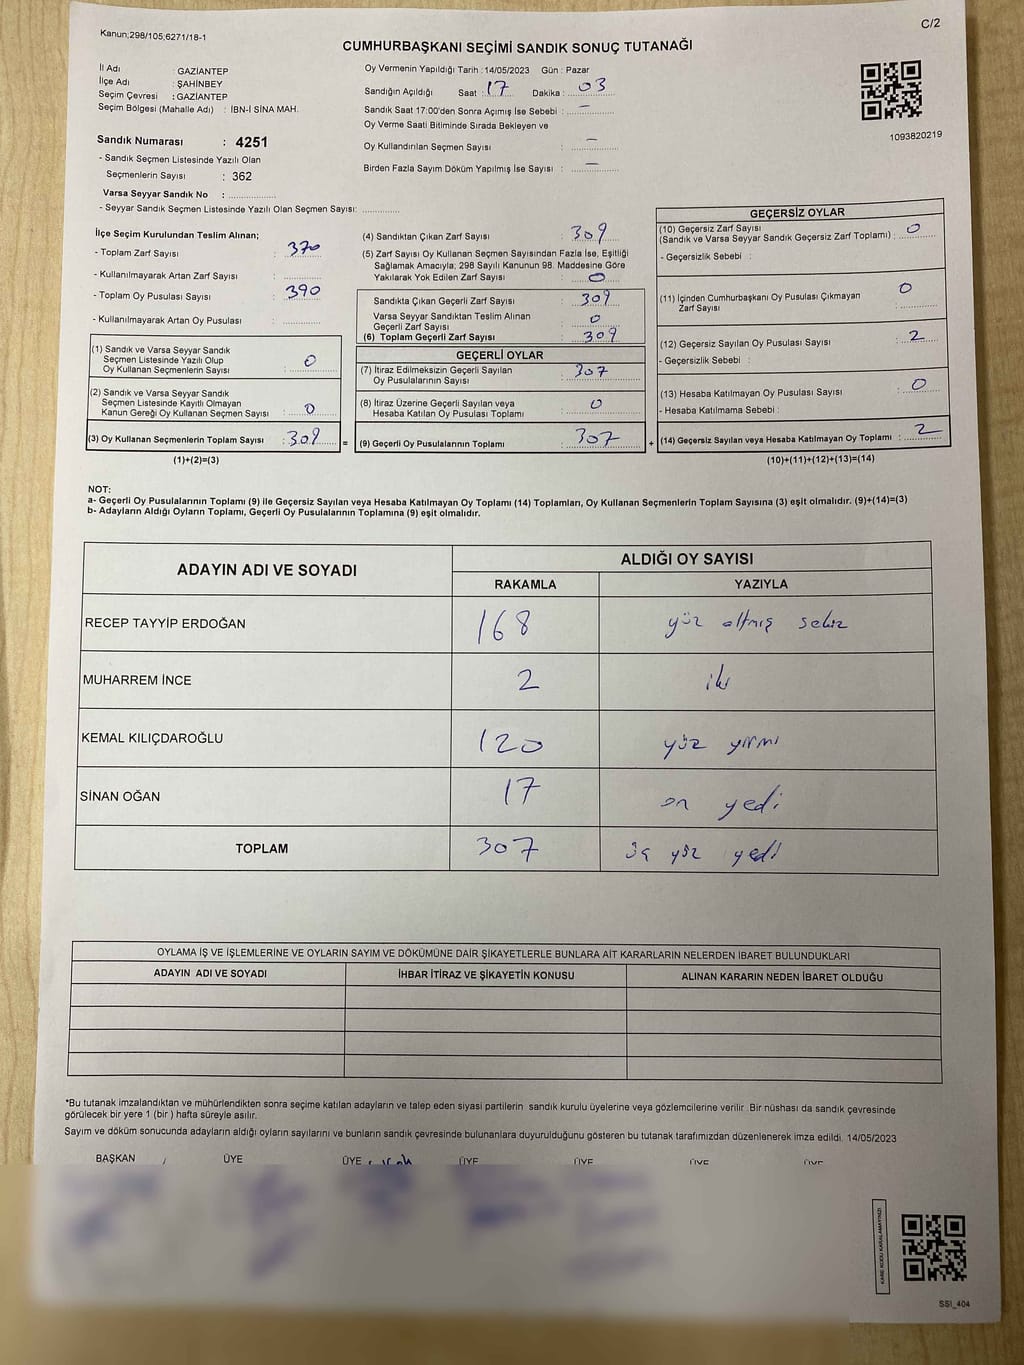 Kanun;298/105;6271/18-1
C/2
CUMHURBAŞKANI SEÇİMİ SANDIK SONUÇ TUTANAĞI
İl Adı : GAZİANTEP
İlçe Adı : ŞAHİNBEY
Seçim Çevresi : GAZİANTEP
Seçim Bölgesi (Mahalle Adı) : İBN-İ SİNA MAH.
Oy Vermenin Yapıldığı Tarih : 14/05/2023 Gün : Pazar
Sandığın Açıldığı Saat : 17 Dakika : 03
Sandık Saat 17:00'den Sonra Açımış İse Sebebi : —
Oy Verme Saati Bitiminde Sırada Bekleyen ve
Oy Kullandırılan Seçmen Sayısı : —
Birden Fazla Sayım Döküm Yapılmış İse Sayısı : —
1093820219
Sandık Numarası : 4251
- Sandık Seçmen Listesinde Yazılı Olan
Seçmenlerin Sayısı : 362
Varsa Seyyar Sandık No :
- Seyyar Sandık Seçmen Listesinde Yazılı Olan Seçmen Sayısı:
İlçe Seçim Kurulundan Teslim Alınan;
- Toplam Zarf Sayısı : 370
- Kullanılmayarak Artan Zarf Sayısı :
- Toplam Oy Pusulası Sayısı : 390
- Kullanılmayarak Artan Oy Pusulası :
(1) Sandık ve Varsa Seyyar Sandık
Seçmen Listesinde Yazılı Olup
Oy Kullanan Seçmenlerin Sayısı : 0
(2) Sandık ve Varsa Seyyar Sandık
Seçmen Listesinde Kayıtlı Olmayan
Kanun Gereği Oy Kullanan Seçmen Sayısı : 0
(3) Oy Kullanan Seçmenlerin Toplam Sayısı : 309 =
(1)+(2)=(3)
(4) Sandıktan Çıkan Zarf Sayısı : 309
(5) Zarf Sayısı Oy Kullanan Seçmen Sayısından Fazla İse, Eşitliği
Sağlamak Amacıyla; 298 Sayılı Kanunun 98. Maddesine Göre
Yakılarak Yok Edilen Zarf Sayısı : 0
Sandıkta Çıkan Geçerli Zarf Sayısı : 309
Varsa Seyyar Sandıktan Teslim Alınan
Geçerli Zarf Sayısı : 0
(6) Toplam Geçerli Zarf Sayısı : 309
GEÇERLİ OYLAR
(7) İtiraz Edilmeksizin Geçerli Sayılan
Oy Pusulalarının Sayısı : 307
(8) İtiraz Üzerine Geçerli Sayılan veya
Hesaba Katılan Oy Pusulası Toplamı : 0
(9) Geçerli Oy Pusulalarının Toplamı : 307 +
GEÇERSİZ OYLAR
(10) Geçersiz Zarf Sayısı
(Sandık ve Varsa Seyyar Sandık Geçersiz Zarf Toplamı) : 0
- Geçersizlik Sebebi :
(11) İçinden Cumhurbaşkanı Oy Pusulası Çıkmayan
Zarf Sayısı : 0
(12) Geçersiz Sayılan Oy Pusulası Sayısı : 2
- Geçersizlik Sebebi :
(13) Hesaba Katılmayan Oy Pusulası Sayısı : 0
- Hesaba Katılmama Sebebi :
(14) Geçersiz Sayılan veya Hesaba Katılmayan Oy Toplamı : 2
(10)+(11)+(12)+(13)=(14)
NOT:
a- Geçerli Oy Pusulalarının Toplamı (9) ile Geçersiz Sayılan veya Hesaba Katılmayan Oy Toplamı (14) Toplamları, Oy Kullanan Seçmenlerin Toplam Sayısına (3) eşit olmalıdır. (9)+(14)=(3)
b- Adayların Aldığı Oyların Toplamı, Geçerli Oy Pusulalarının Toplamına (9) eşit olmalıdır.
ADAYIN ADI VE SOYADI
ALDIĞI OY SAYISI
RAKAMLA YAZIYLA
RECEP TAYYİP ERDOĞAN 168 yüz altmış sekiz
MUHARREM İNCE 2 iki
KEMAL KILIÇDAROĞLU 120 yüz yirmi
SİNAN OĞAN 17 on yedi
TOPLAM 307 üç yüz yedi
OYLAMA İŞ VE İŞLEMLERİNE VE OYLARIN SAYIM VE DÖKÜMÜNE DAİR ŞİKAYETLERLE BUNLARA AİT KARARLARIN NELERDEN İBARET BULUNDUKLARI
ADAYIN ADI VE SOYADI İHBAR İTİRAZ VE ŞİKAYETİN KONUSU ALINAN KARARIN NEDEN İBARET OLDUĞU
*Bu tutanak imzalandıktan ve mühürlendikten sonra seçime katılan adayların ve talep eden siyasi partilerin sandık kurulu üyelerine veya gözlemcilerine verilir .Bir nüshası da sandık çevresinde
görülecek bir yere 1 (bir ) hafta süreyle asılır.
Sayım ve döküm sonucunda adayların aldığı oyların sayılarını ve bunların sandık çevresinde bulunanlara duyurulduğunu gösteren bu tutanak tarafımızdan düzenlenerek imza edildi. 14/05/2023
BAŞKAN ÜYE ÜYE ÜYE ÜYE ÜYE ÜYE
KARE KODU KARALAMAYINIZ!
SSI_404